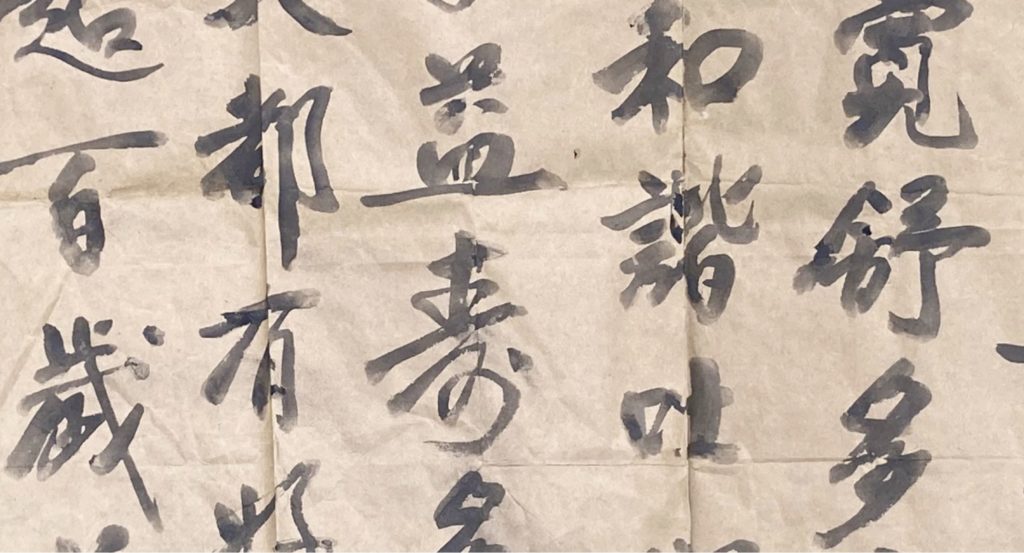 寬舒多
和諧吐
益壽
都有好
超百歲